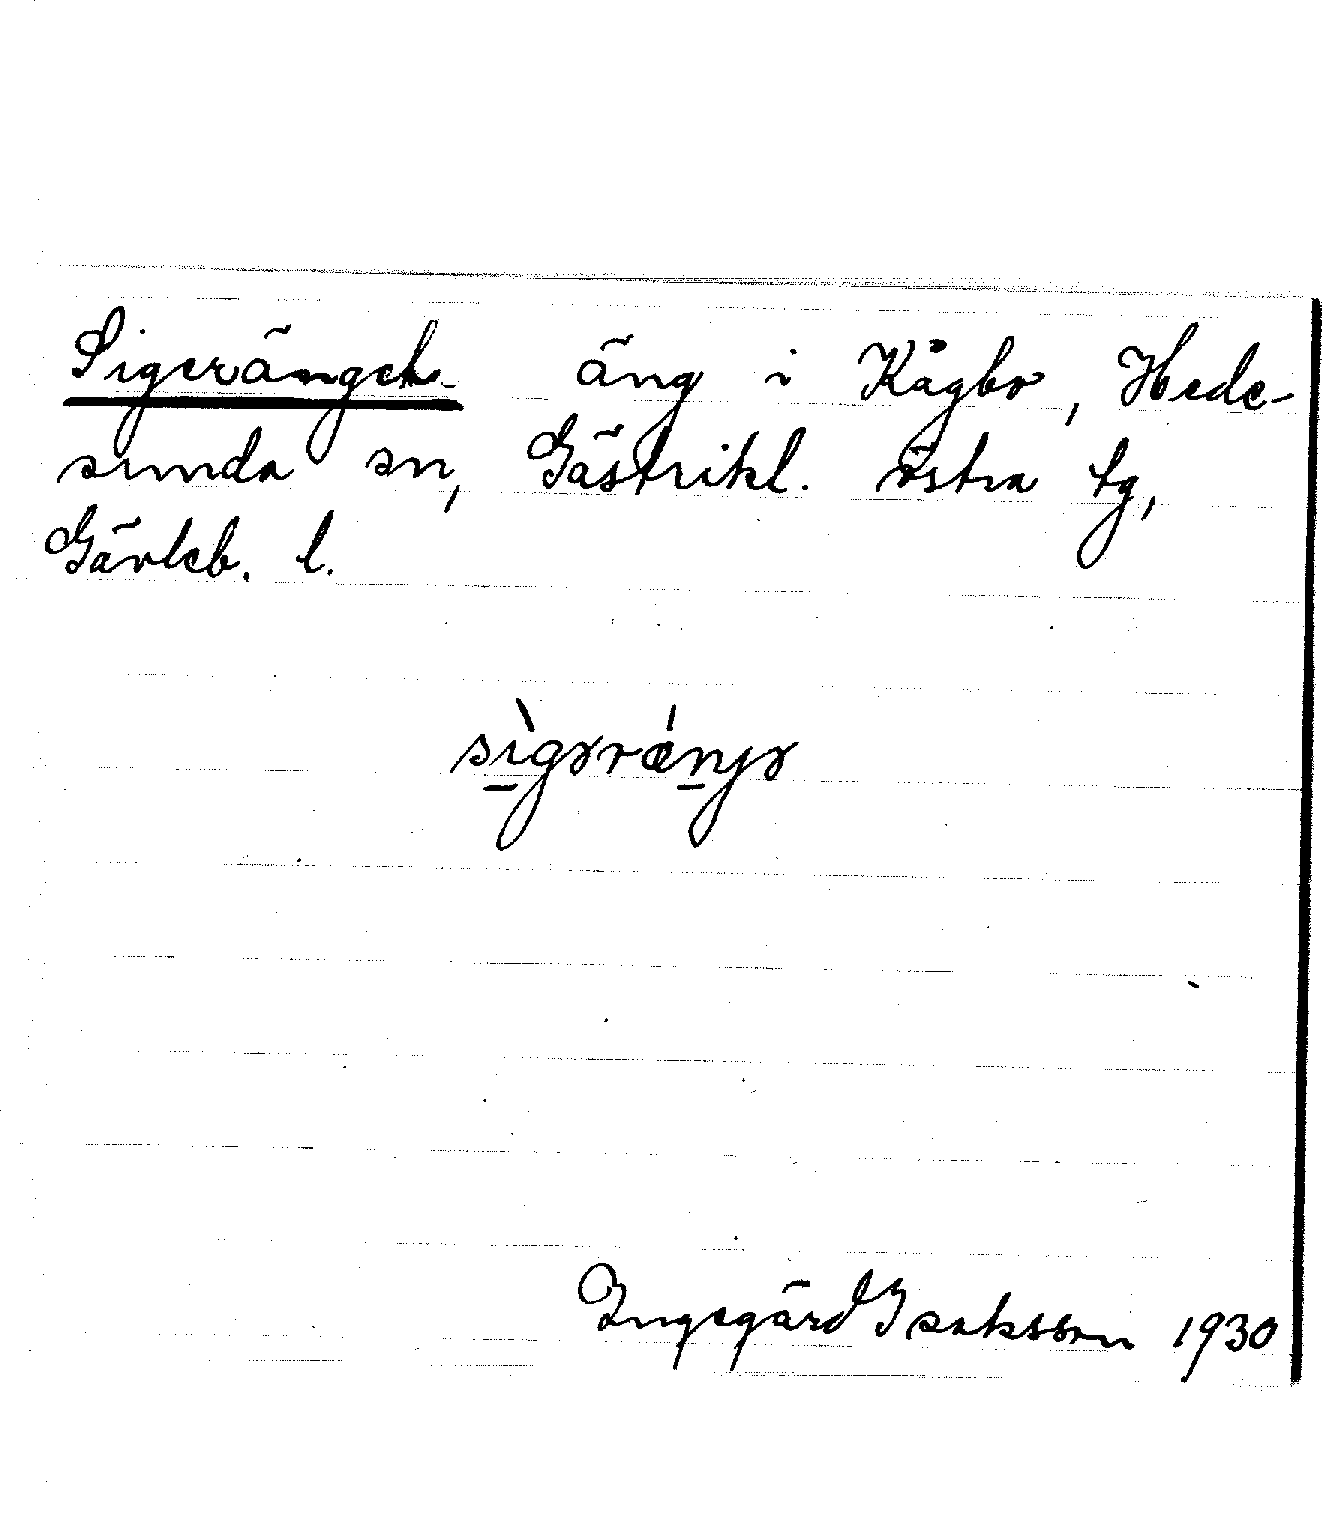 Sigeränget äng i Kågbo, Hede-
sunda sn, Gästrikl. östra tg,
Gävleb. l.
sìgərǽŋjə
Ingegärd Isaksson 1930